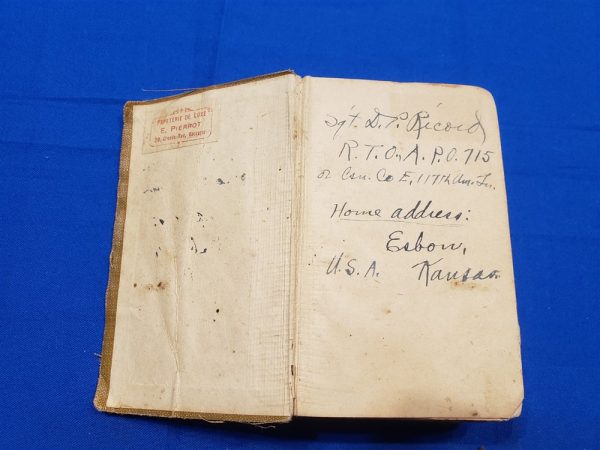 PAPETERIE DE LUXE
E. PIERROT
Sgt. D. P. Record
R. T. O., A. P. O. 715
or Csn. Co E, 117th Am. Tn.
Home address:
Esbon,
U. S. A. Kansas